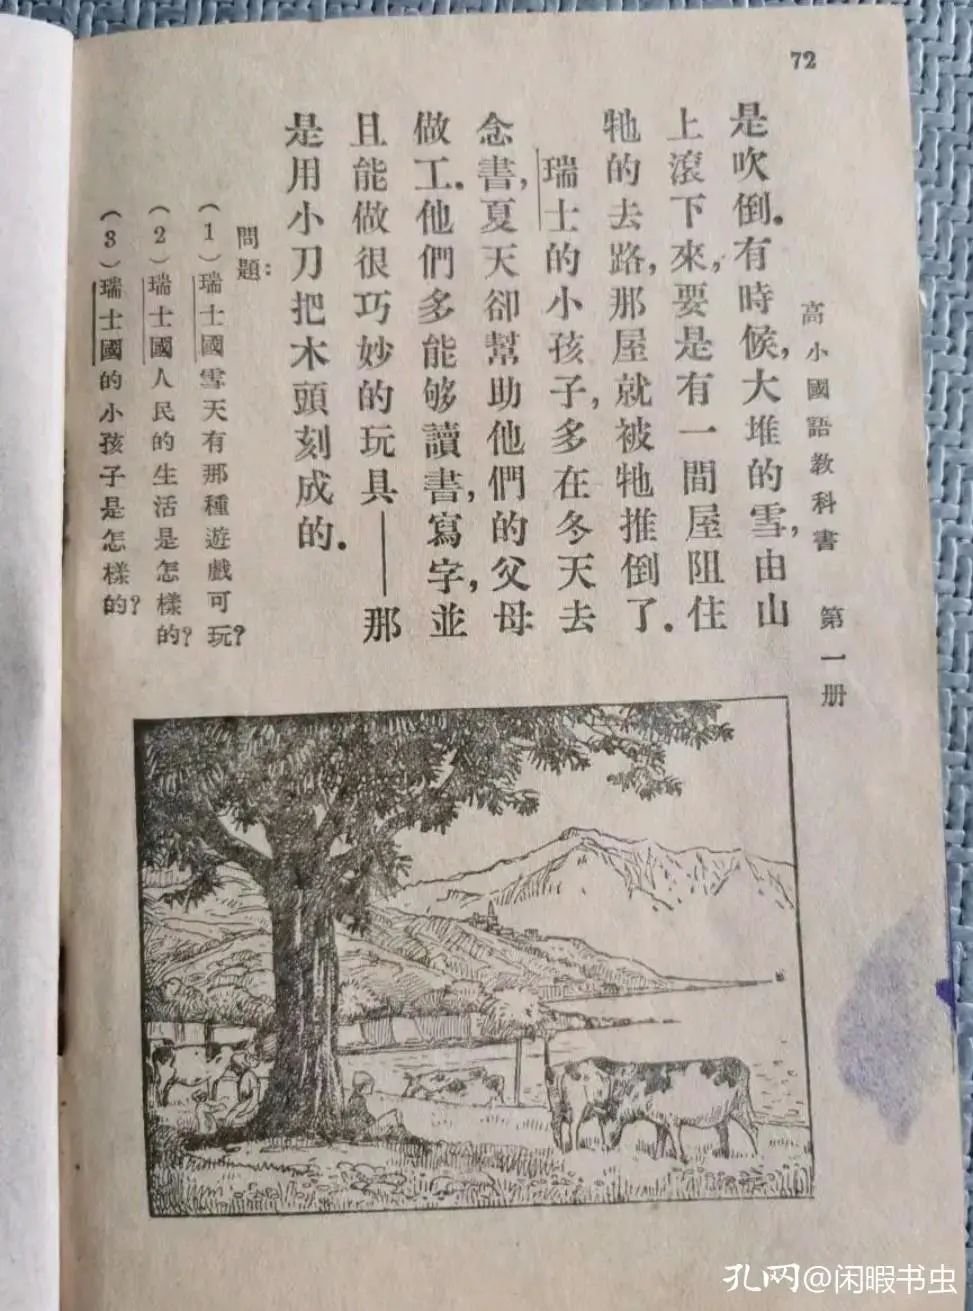 72
高小國語教科書 第一册
是吹倒.有時候,大堆的雪,由山
上滾下來,要是有一間屋阻住
牠的去路,那屋就被牠推倒了.
瑞士的小孩子,多在冬天去
念書,夏天卻幫助他們的父母
做工.他們多能够讀書,寫字,並
且能做很巧妙的玩具——那
是用小刀把木頭刻成的.
問題:
(1)瑞士國雪天有那種遊戲可玩?
(2)瑞士國人民的生活是怎樣的?
(3)瑞士國的小孩子是怎樣的?
孔网@闲暇书虫